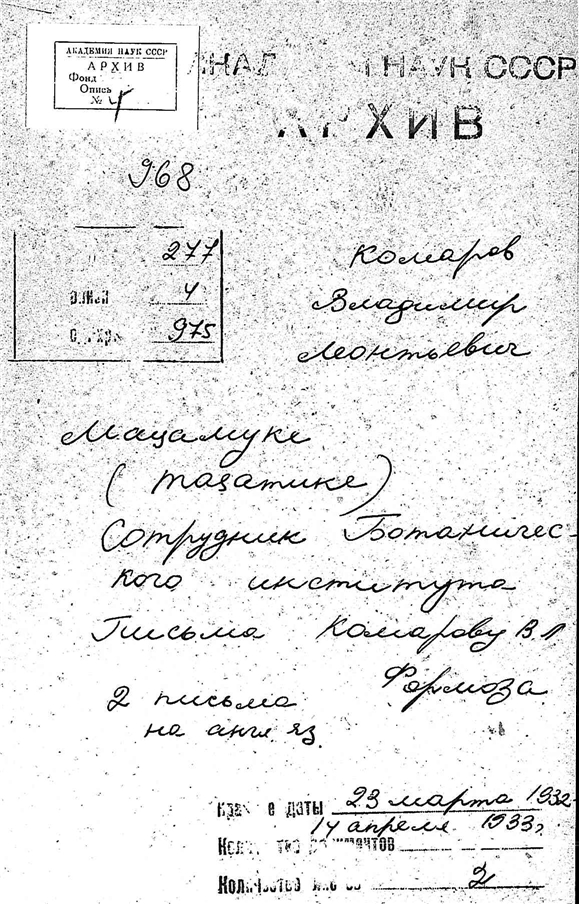 АКАДЕМИЯ НАУК СССР
АРХИВ
Фонд
Опись
№ 4
НАУК СССР
АРХИВ
968
277
4
975
Комаров
Владимир
Леонтьевич
Мацамуке
(masamuke)
Сотрудник Ботаничес-
кого института
Письма Комарову В.Л
Формоза
2 письма
на англ яз.
Крайние даты 23 марта 1932-
14 апреля 1933г
Количество документов
Количество листов 2